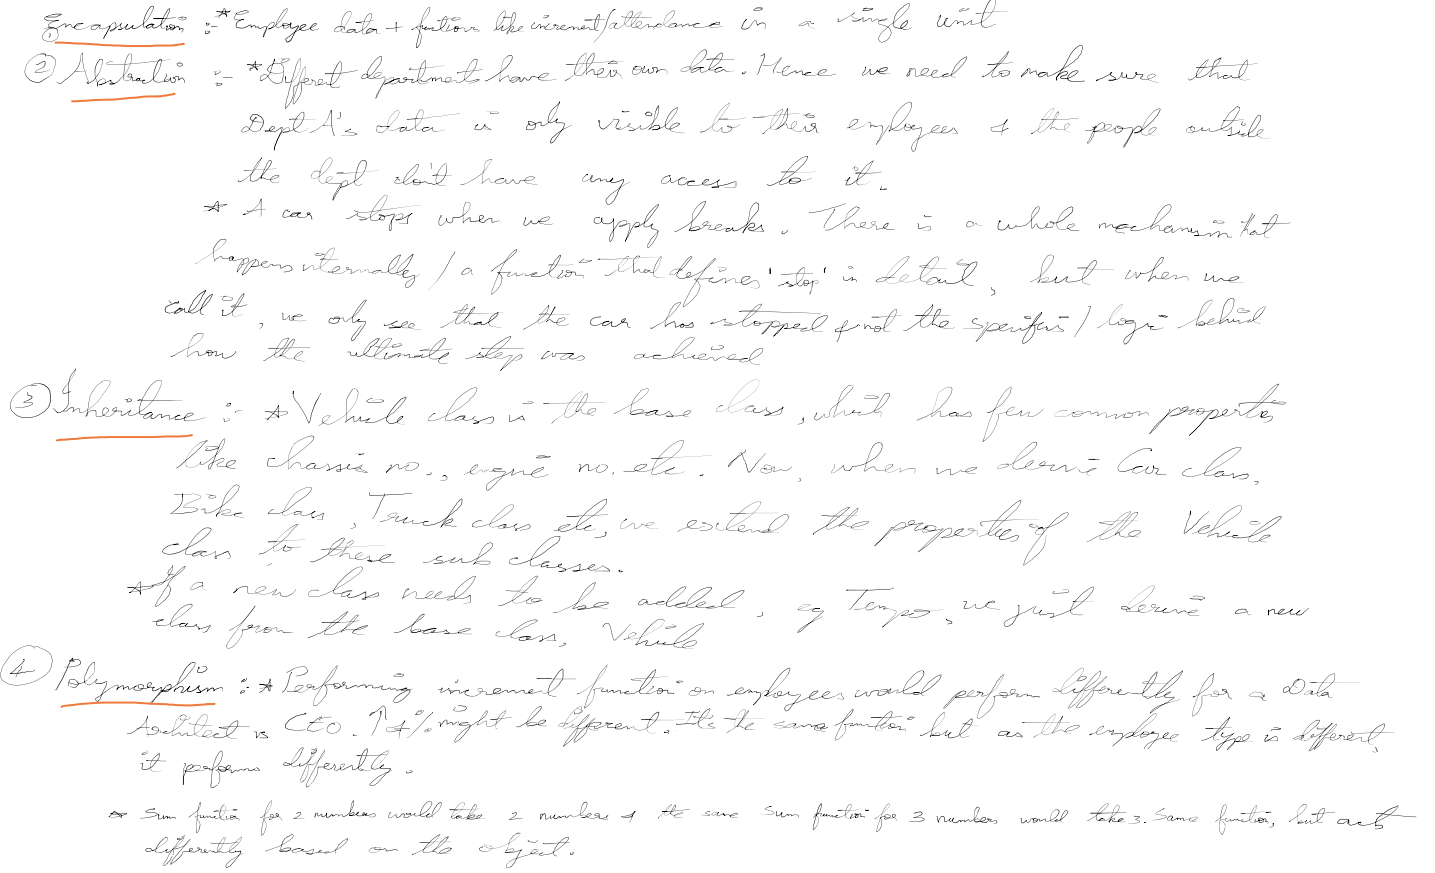 ① Encapsulation :- * Employee data + functions like increment/attendance in a single unit
② Abstraction :- * Different departments have their own data. Hence we need to make sure that
Dept A's data is only visible to their employees & the people outside
the dept don't have any access to it.
* A car stops when we apply breaks. There is a whole mechanism that
happens internally / a function that defines 'stop' in detail, but when we
call it, we only see that the car has stopped & not the specifics / logic behind
how the ultimate step was achieved
③ Inheritance :- * Vehicle class is the base class, which has few common properties
like chassis no., engine no. etc. Now, when we derive Car class,
Bike class, Truck class etc, we extend the properties of the Vehicle
class to these sub classes.
* If a new class needs to be added, eg Tempo, we just derive a new
class from the base class, Vehicle
④ Polymorphism :- * Performing increment function on employees would perform differently for a Data
Architect vs CEO. ↑ % might be different. It's the same function but as the employee type is different,
it performs differently.
* Sum function for 2 numbers would take 2 numbers & the same sum function for 3 numbers would take 3. Same function, but acts
differently based on the object.